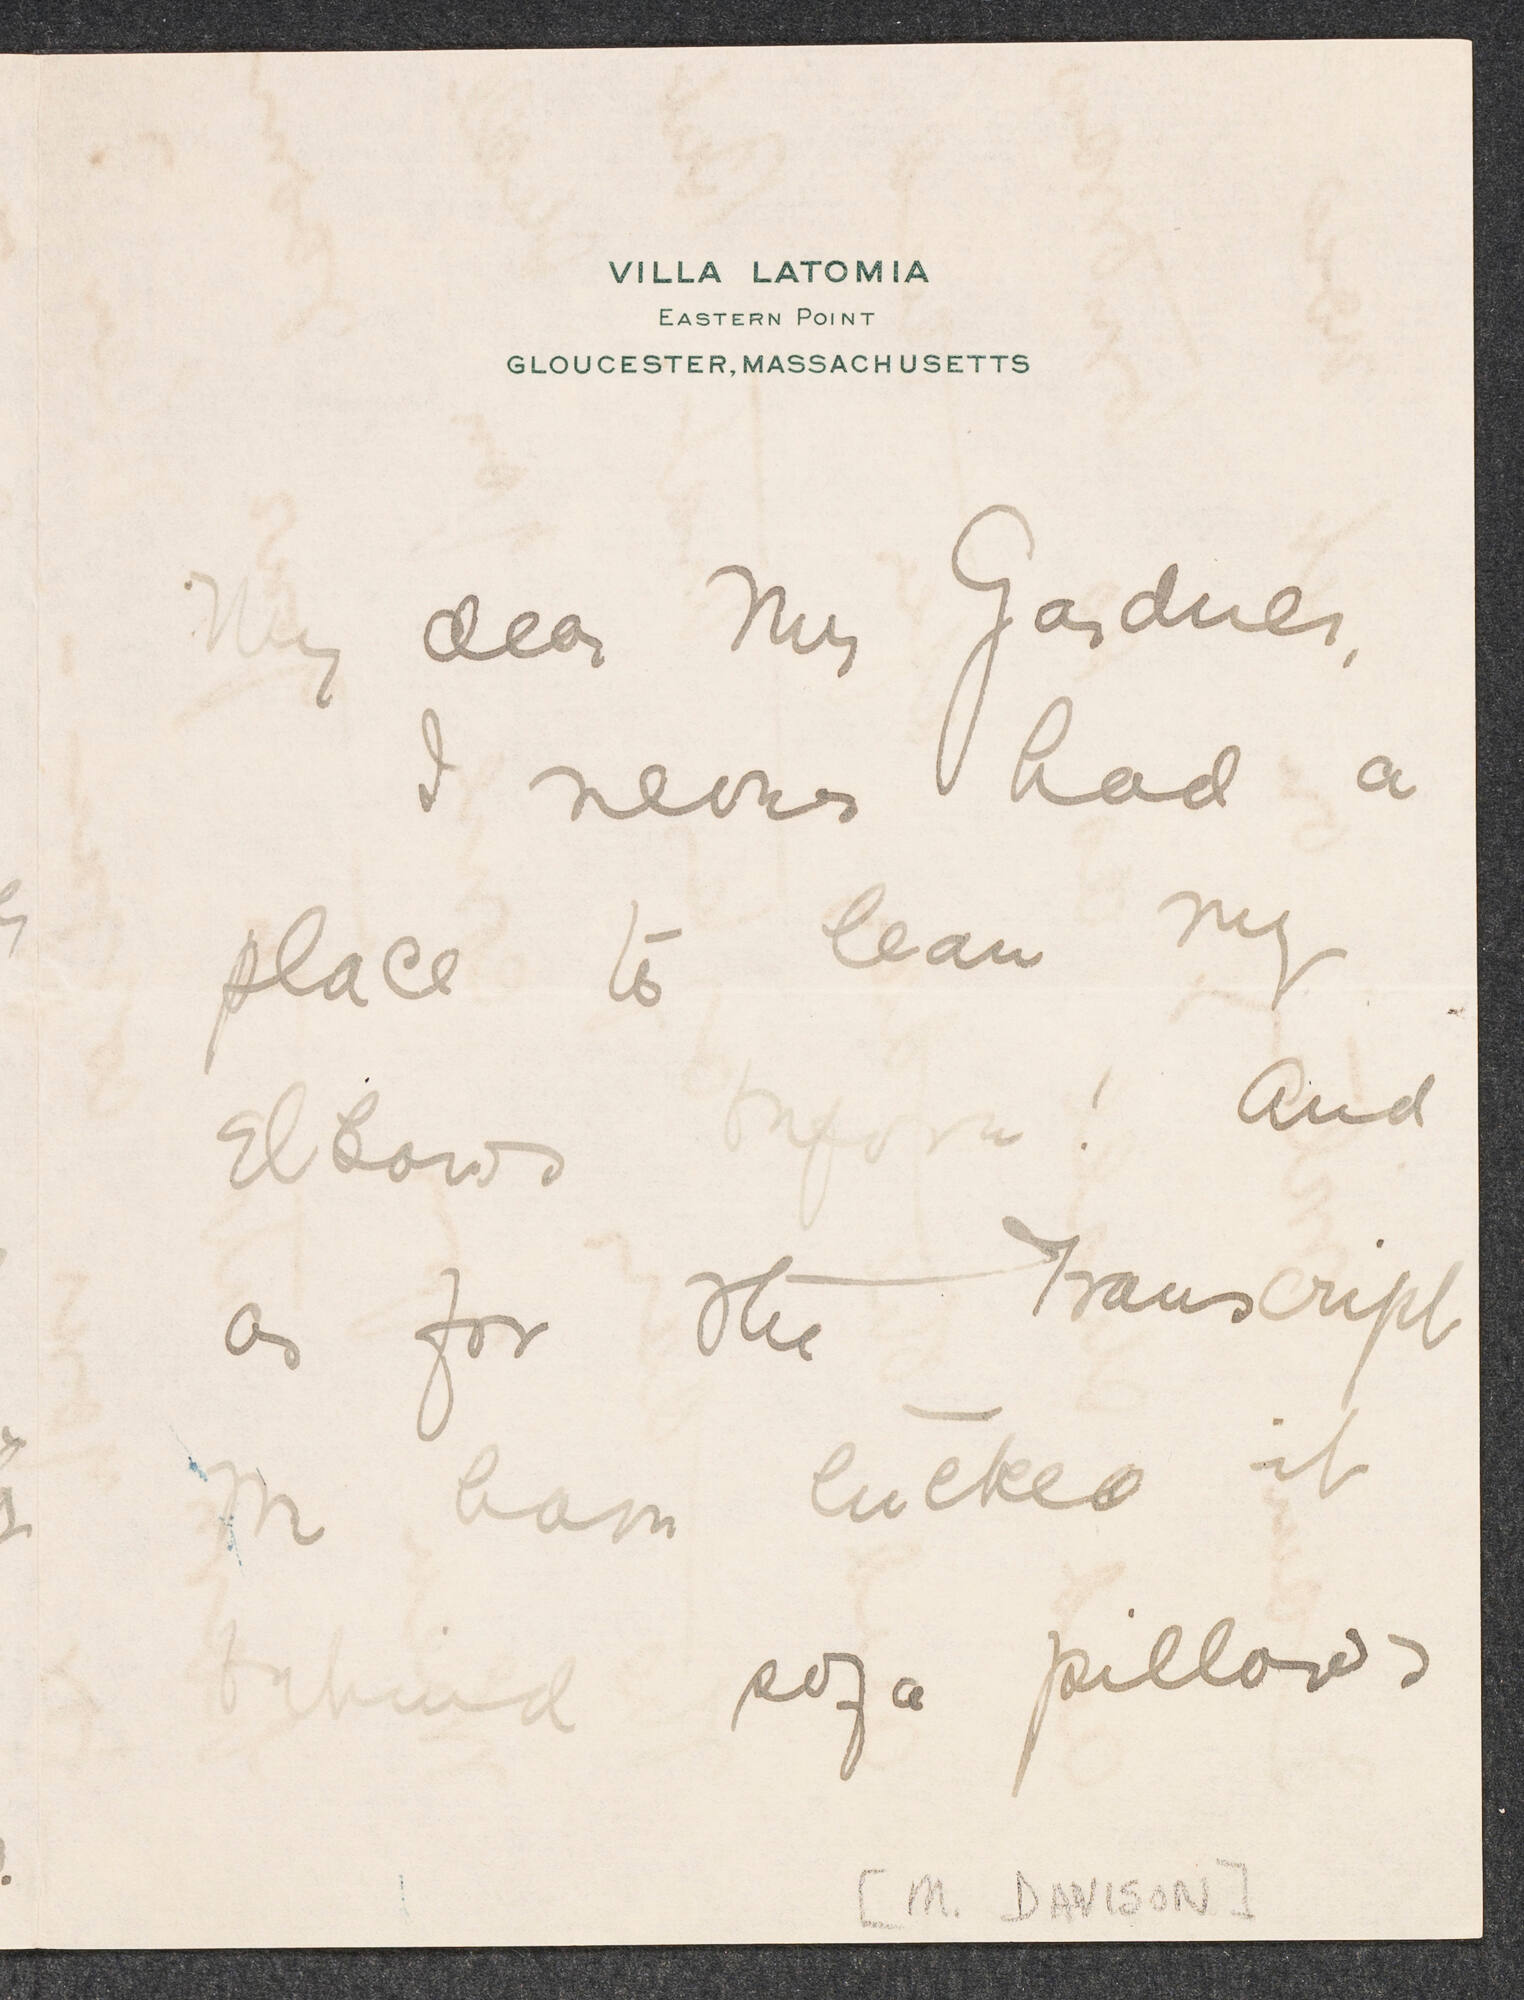 VILLA LATOMIA
EASTERN POINT
GLOUCESTER, MASSACHUSETTS
My dear Mrs Gardner,
I never had a
place to lean my
Elbows before! And
as for the Transcript
We have tucked it
behind sofa pillows
[M. DAVISON]